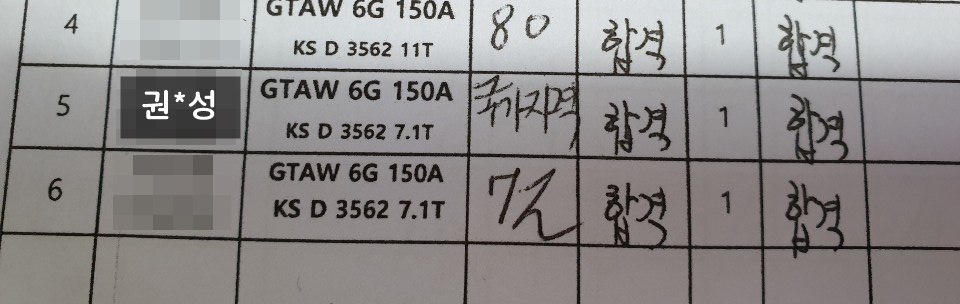 4 GTAW 6G 150A 80 합격 1 합격
KS D 3562 11T
5 권*성 GTAW 6G 150A 국가자격 합격 1 합격
KS D 3562 7.1T
6 GTAW 6G 150A 합격 1 합격
KS D 3562 7.1T